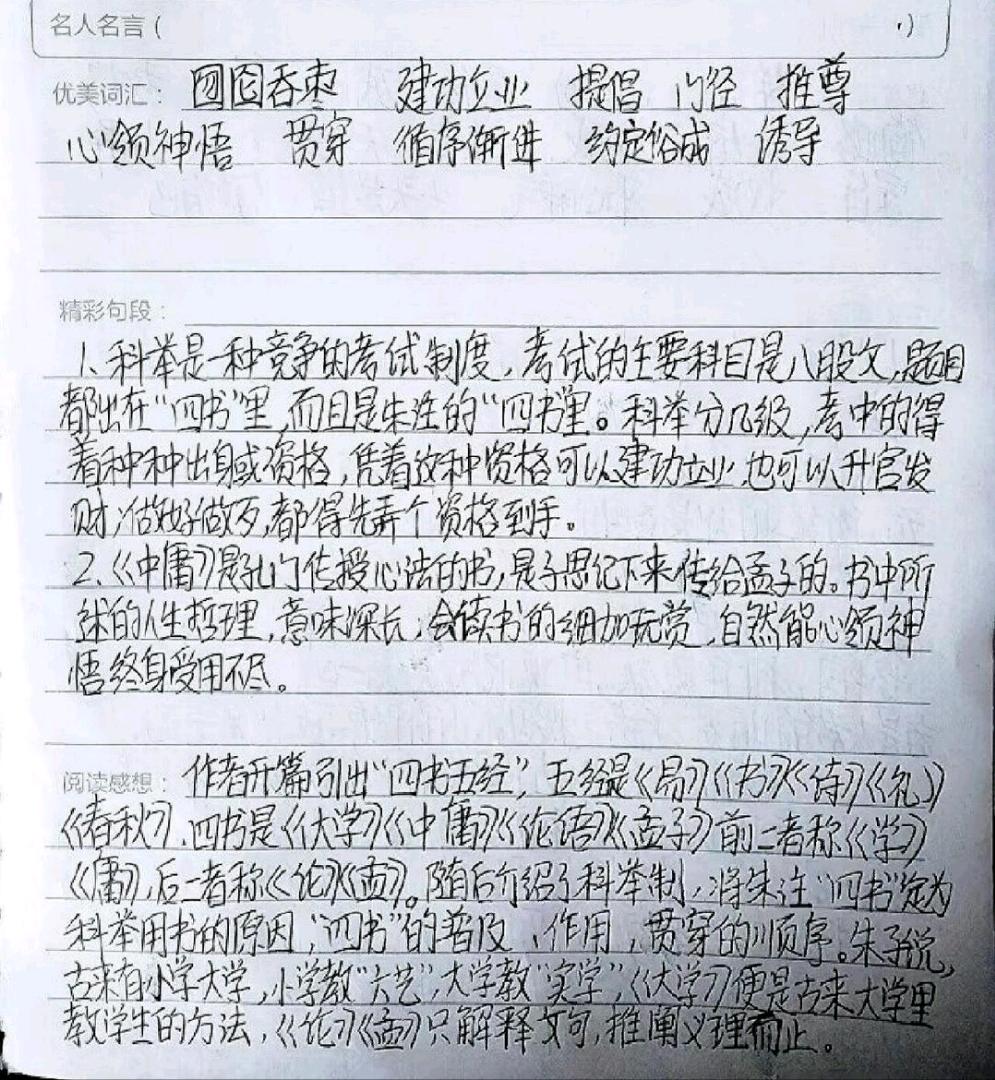 名人名言（ ）
优美词汇： 囫囵吞枣 建功立业 提倡 门径 推尊
心领神悟 贯穿 循序渐进 约定俗成 诱导
精彩句段：
1、科举是一种竞争的考试制度，考试的主要科目是八股文，题目
都出在“四书”里，而且是朱注的“四书”里。科举分几级，考中的得
着种种出身或资格，凭着这种资格可以建功立业，也可以升官发
财；做好做歹，都得先弄个资格到手。
2、《中庸》是孔门传授心法的书，是子思记下来传给孟子的。书中所
述的人生哲理，意味深长，会读书的细加玩赏，自然能心领神
悟终身受用不尽。
阅读感想： 作者开篇引出“四书五经”，五经是《易》《书》《诗》《礼》
《春秋》，四书是《大学》《中庸》《论语》《孟子》前二者称《学》
《庸》，后二者称《论》《孟》。随后介绍了科举制，将朱注“四书”定为
科举用书的原因，“四书”的普及、作用，贯穿的顺序。朱子说，
古来有小学大学，小学教“六艺”，大学教“实学”，《大学》便是古来大学里
教学生的方法，《论》《孟》只解释文句，推阐义理而止。